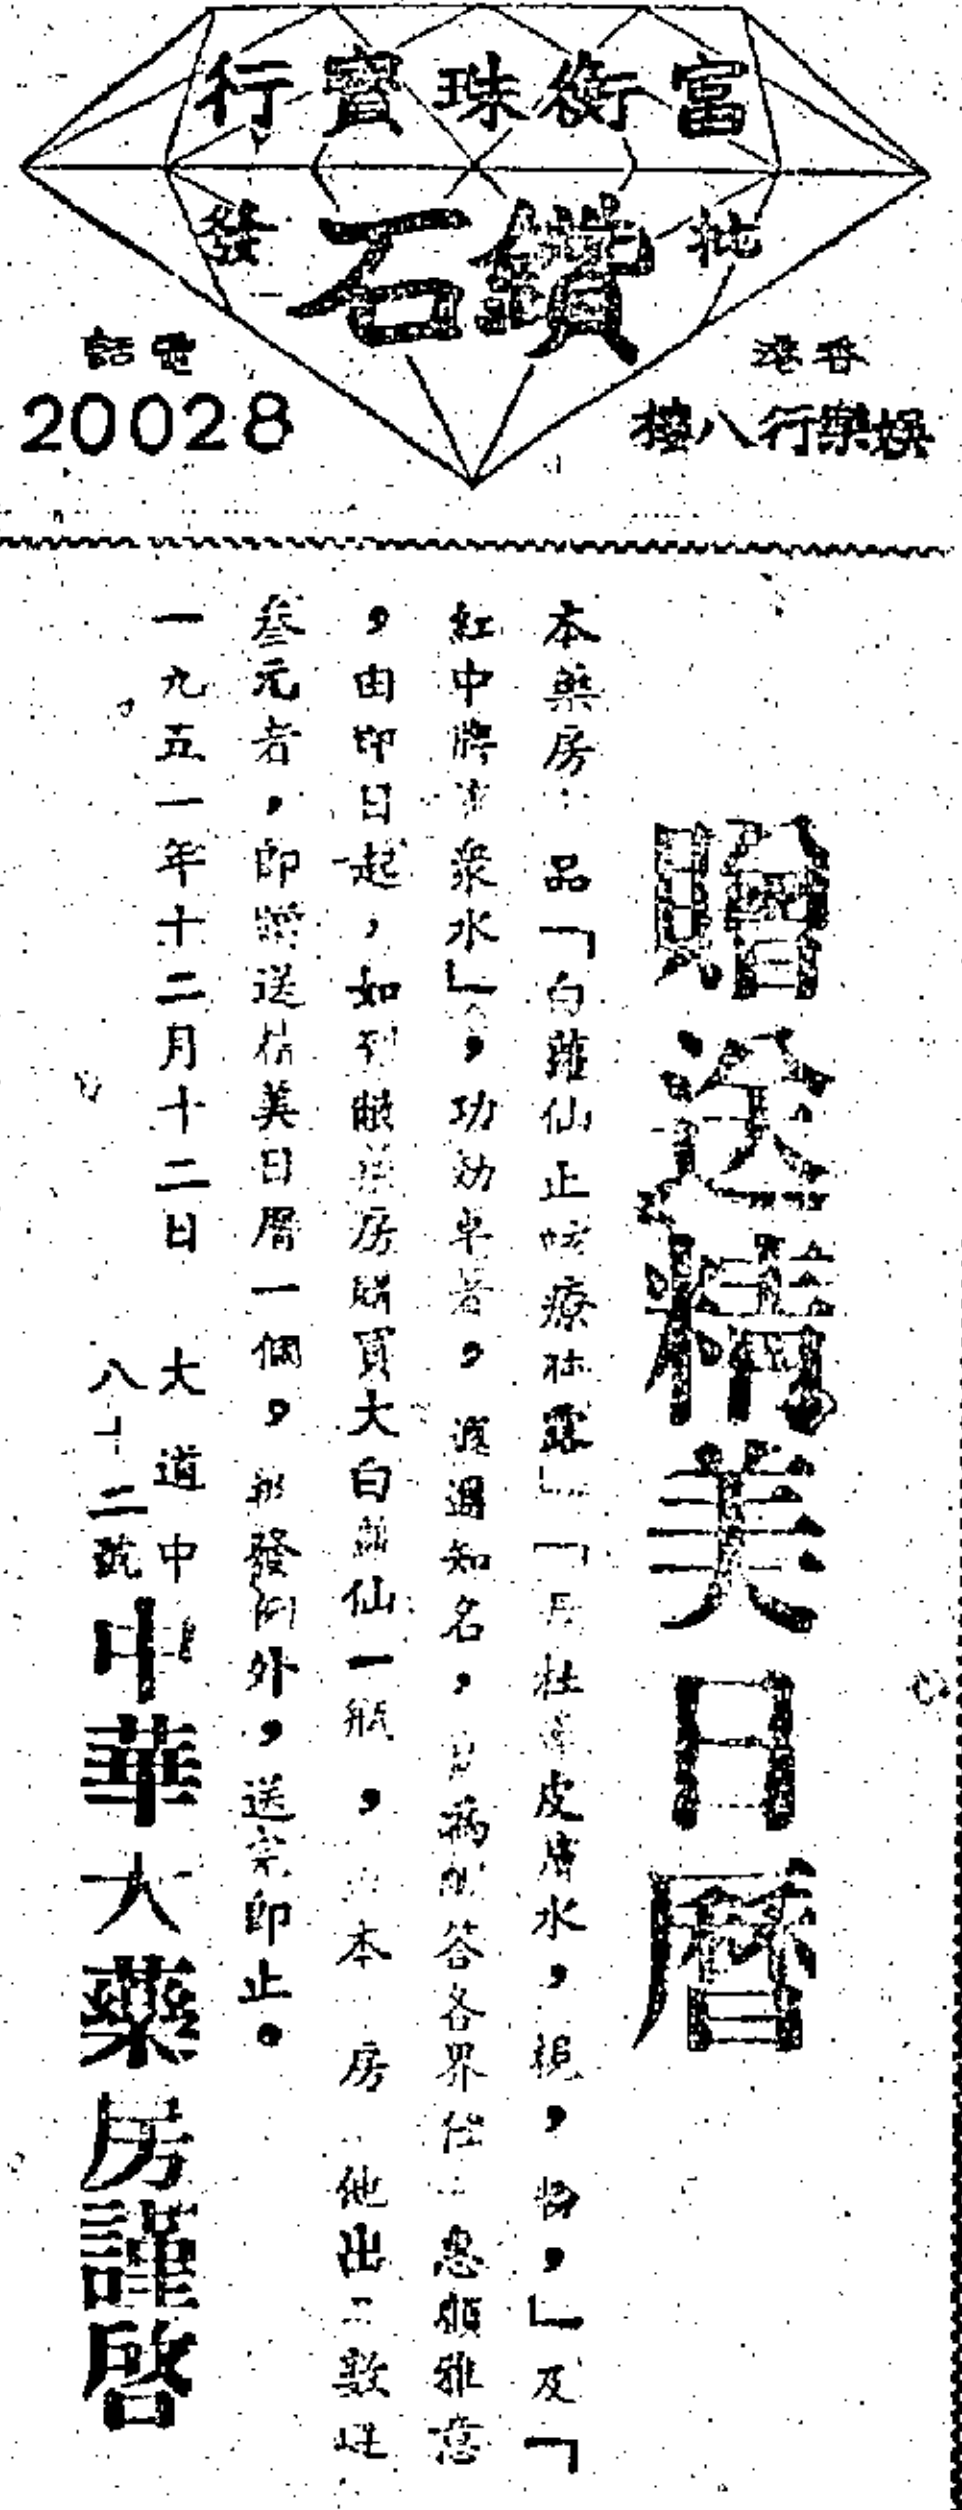 富衡珠寶行
批發
鑽石
香港
娛樂行八樓
電話
20028
贈送精美日曆
本藥房 品「白蘿仙止咳療肺露」「 杜 皮膚水, , 」及「
紅中 衆水」,功効卓著, 遐邇知名, 答各界 惠顧雅意
,由即日起,如到 房購買大白蘿仙一瓶, 本 房 他出品 数足
叁元者,即贈送精美日曆一個, 發 外,送完即止。
一九五一年十二月十二日
大道中
八十二號
中華大藥房謹啓